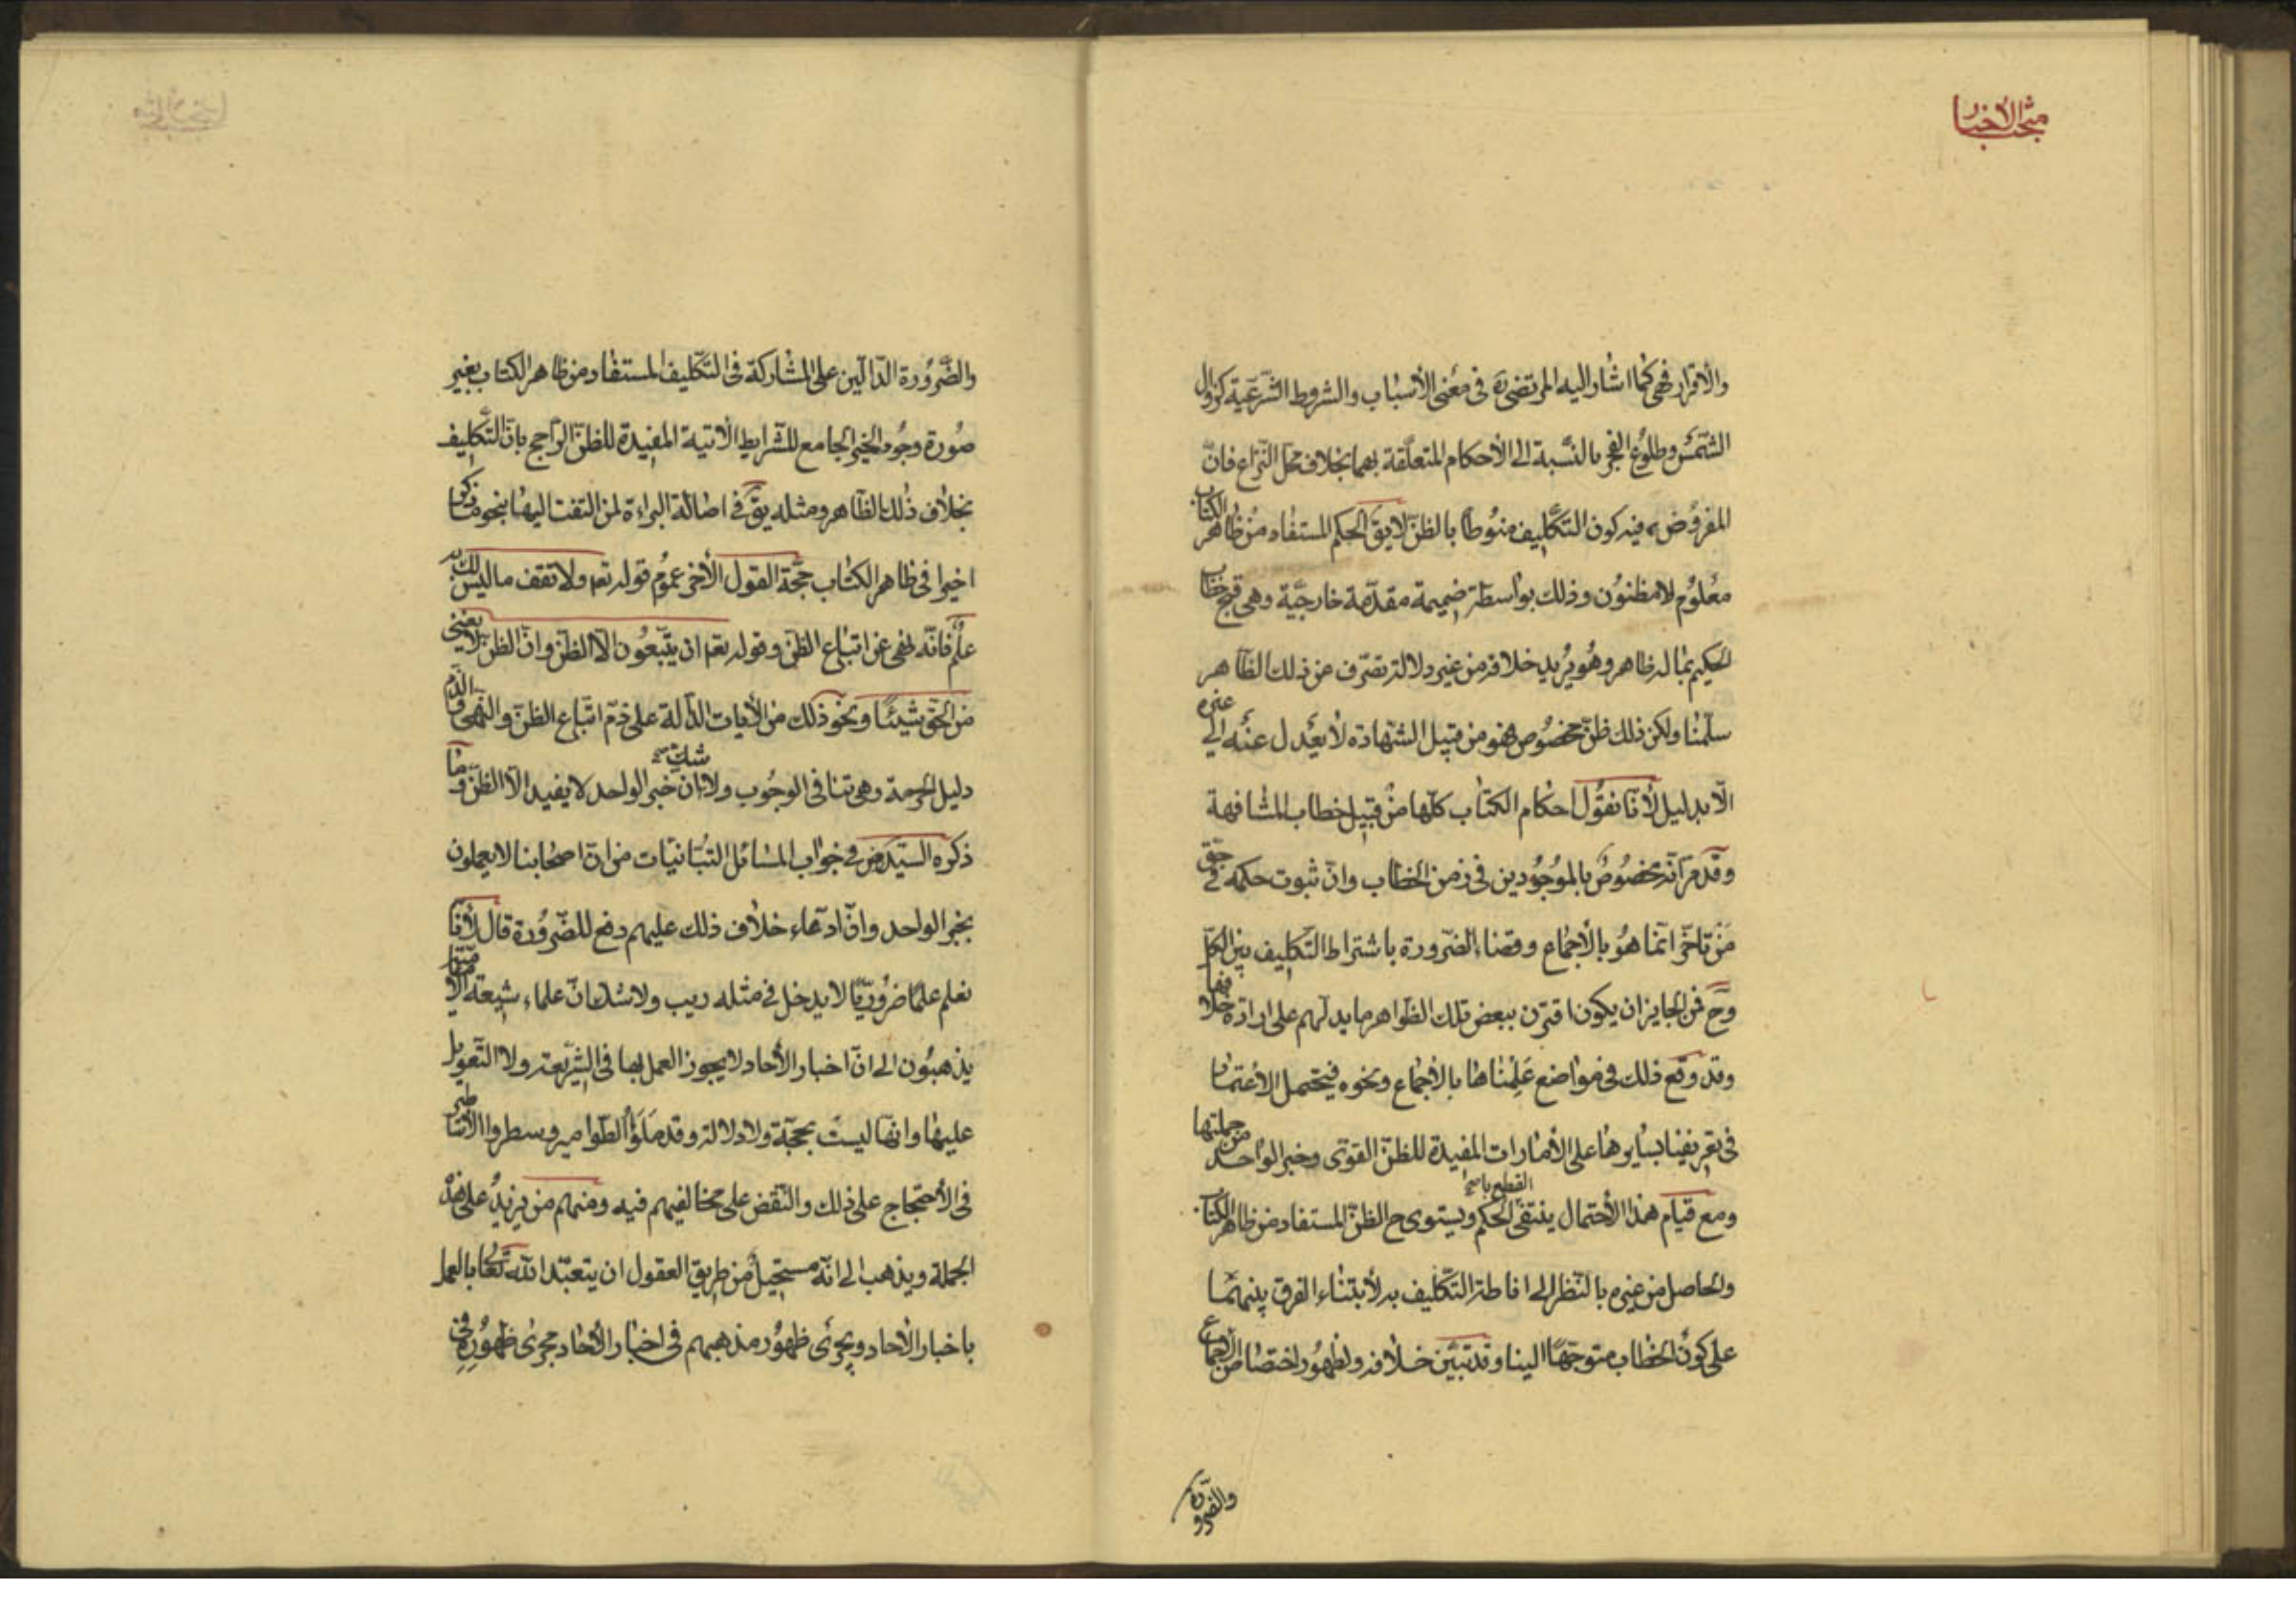 والاقرار فهى كما اشار اليه المرتضى ره فى معنى الأسباب والشروط الشرعية كزوال
الشمس وطلوع الفجر بالنسبة الى الأحكام المتعلقة بهما بخلاف محل النزاع فان
المفروض فيه كون التكليف منوطا بالظن لا يق الحكم المستفاد من ظاهر الكتاب
معلوم لا مظنون وذلك بواسطة ضميمة مقدمة خارجية وهى قبح خطاب
الحكيم بما له ظاهر وهو يريد خلافه من غير دلالة تصرف عن ذلك الظاهر
سلمنا ولكن ذلك ظن مخصوص فهو من قبيل الشهادة لا يعدل عنه الى غيره
الا بدليل لأنا نقول احكام الكتاب كلها من قبيل خطاب المشافهة
وقد مر انه مخصوص بالموجودين فى زمن الخطاب وان ثبوت حكمه فى حق
من تاخر انما هو بالأجماع وقضاء الضرورة باشتراط التكليف بين الكل
وح فمن الجايز ان يكون اقترن ببعض تلك الظواهر ما يدلهم على ارادة خلافها
وقد وقع ذلك فى مواضع علمناها بالأجماع ونحوه فيحتمل الأعتماد
فى تعريفنا بسايرها على الأمارات المفيدة للظن القوى وخبر الواحد من جملتها
ومع قيام هذا الأحتمال ينتفى القطع بالحكم ويستوى ح الظن المستفاد من ظاهر الكتاب
والحاصل من غيره بالنظر الى اناطة التكليف به لأبتناء الفرق بينهما
على كون الخطاب متوجها الينا وقد تبين خلافه ولظهور اختصاص الأجماع
والضرورة
منتخب الأخبار
والضرورة الدالين على المشاركة فى التكليف المستفاد من ظاهر الكتاب بغير
صورة وجود الخبر الجامع للشرايط الآتية المفيدة للظن الراجح بان التكليف
بخلاف ذلك الظاهر ومثله يق فى اصالة البراءة لمن التفت اليها بنحو ما ذكر
اخيرا فى ظاهر الكتاب حجة القول الأخر عموم قوله تعه ولا تقف ما ليس لك به
علم فانه نهى عن اتباع الظن وقوله تعه ان يتبعون الا الظن وان الظن لا يغنى
من الحق شيئا ونحو ذلك من الأيات الدالة على ذم اتباع الظن والنهى والذم
دليل الحرمة وهى تنافى الوجوب ولا شك ان خبر الواحد لا يفيد الا الظن وما
ذكره السيد رض فى جواب المسائل التبانيات من ان اصحابنا لا يعملون
بخبر الواحد وان ادعاء خلاف ذلك عليهم دفع للضرورة قال لأنا
نعلم علما ضروريا لا يدخل فى مثله ريب ولا شك ان علماء شيعة الأمامية
يذهبون الى ان اخبار الأحاد لا يجوز العمل بها فى الشريعة ولا التعويل
عليها وانها ليست بحجة ولا دلالة وقد ملؤا الطوامير وسطروا الأساطير
فى الأحتجاج على ذلك والنقض على مخالفيهم فيه ومنهم من يزيد على هذه
الجملة ويذهب الى انه مستحيل من طريق العقول ان يتعبد الله تعالى بالعمل
باخبار الأحاد ويجرى ظهور مذهبهم فى اخبار الأحاد مجرى ظهوره فى